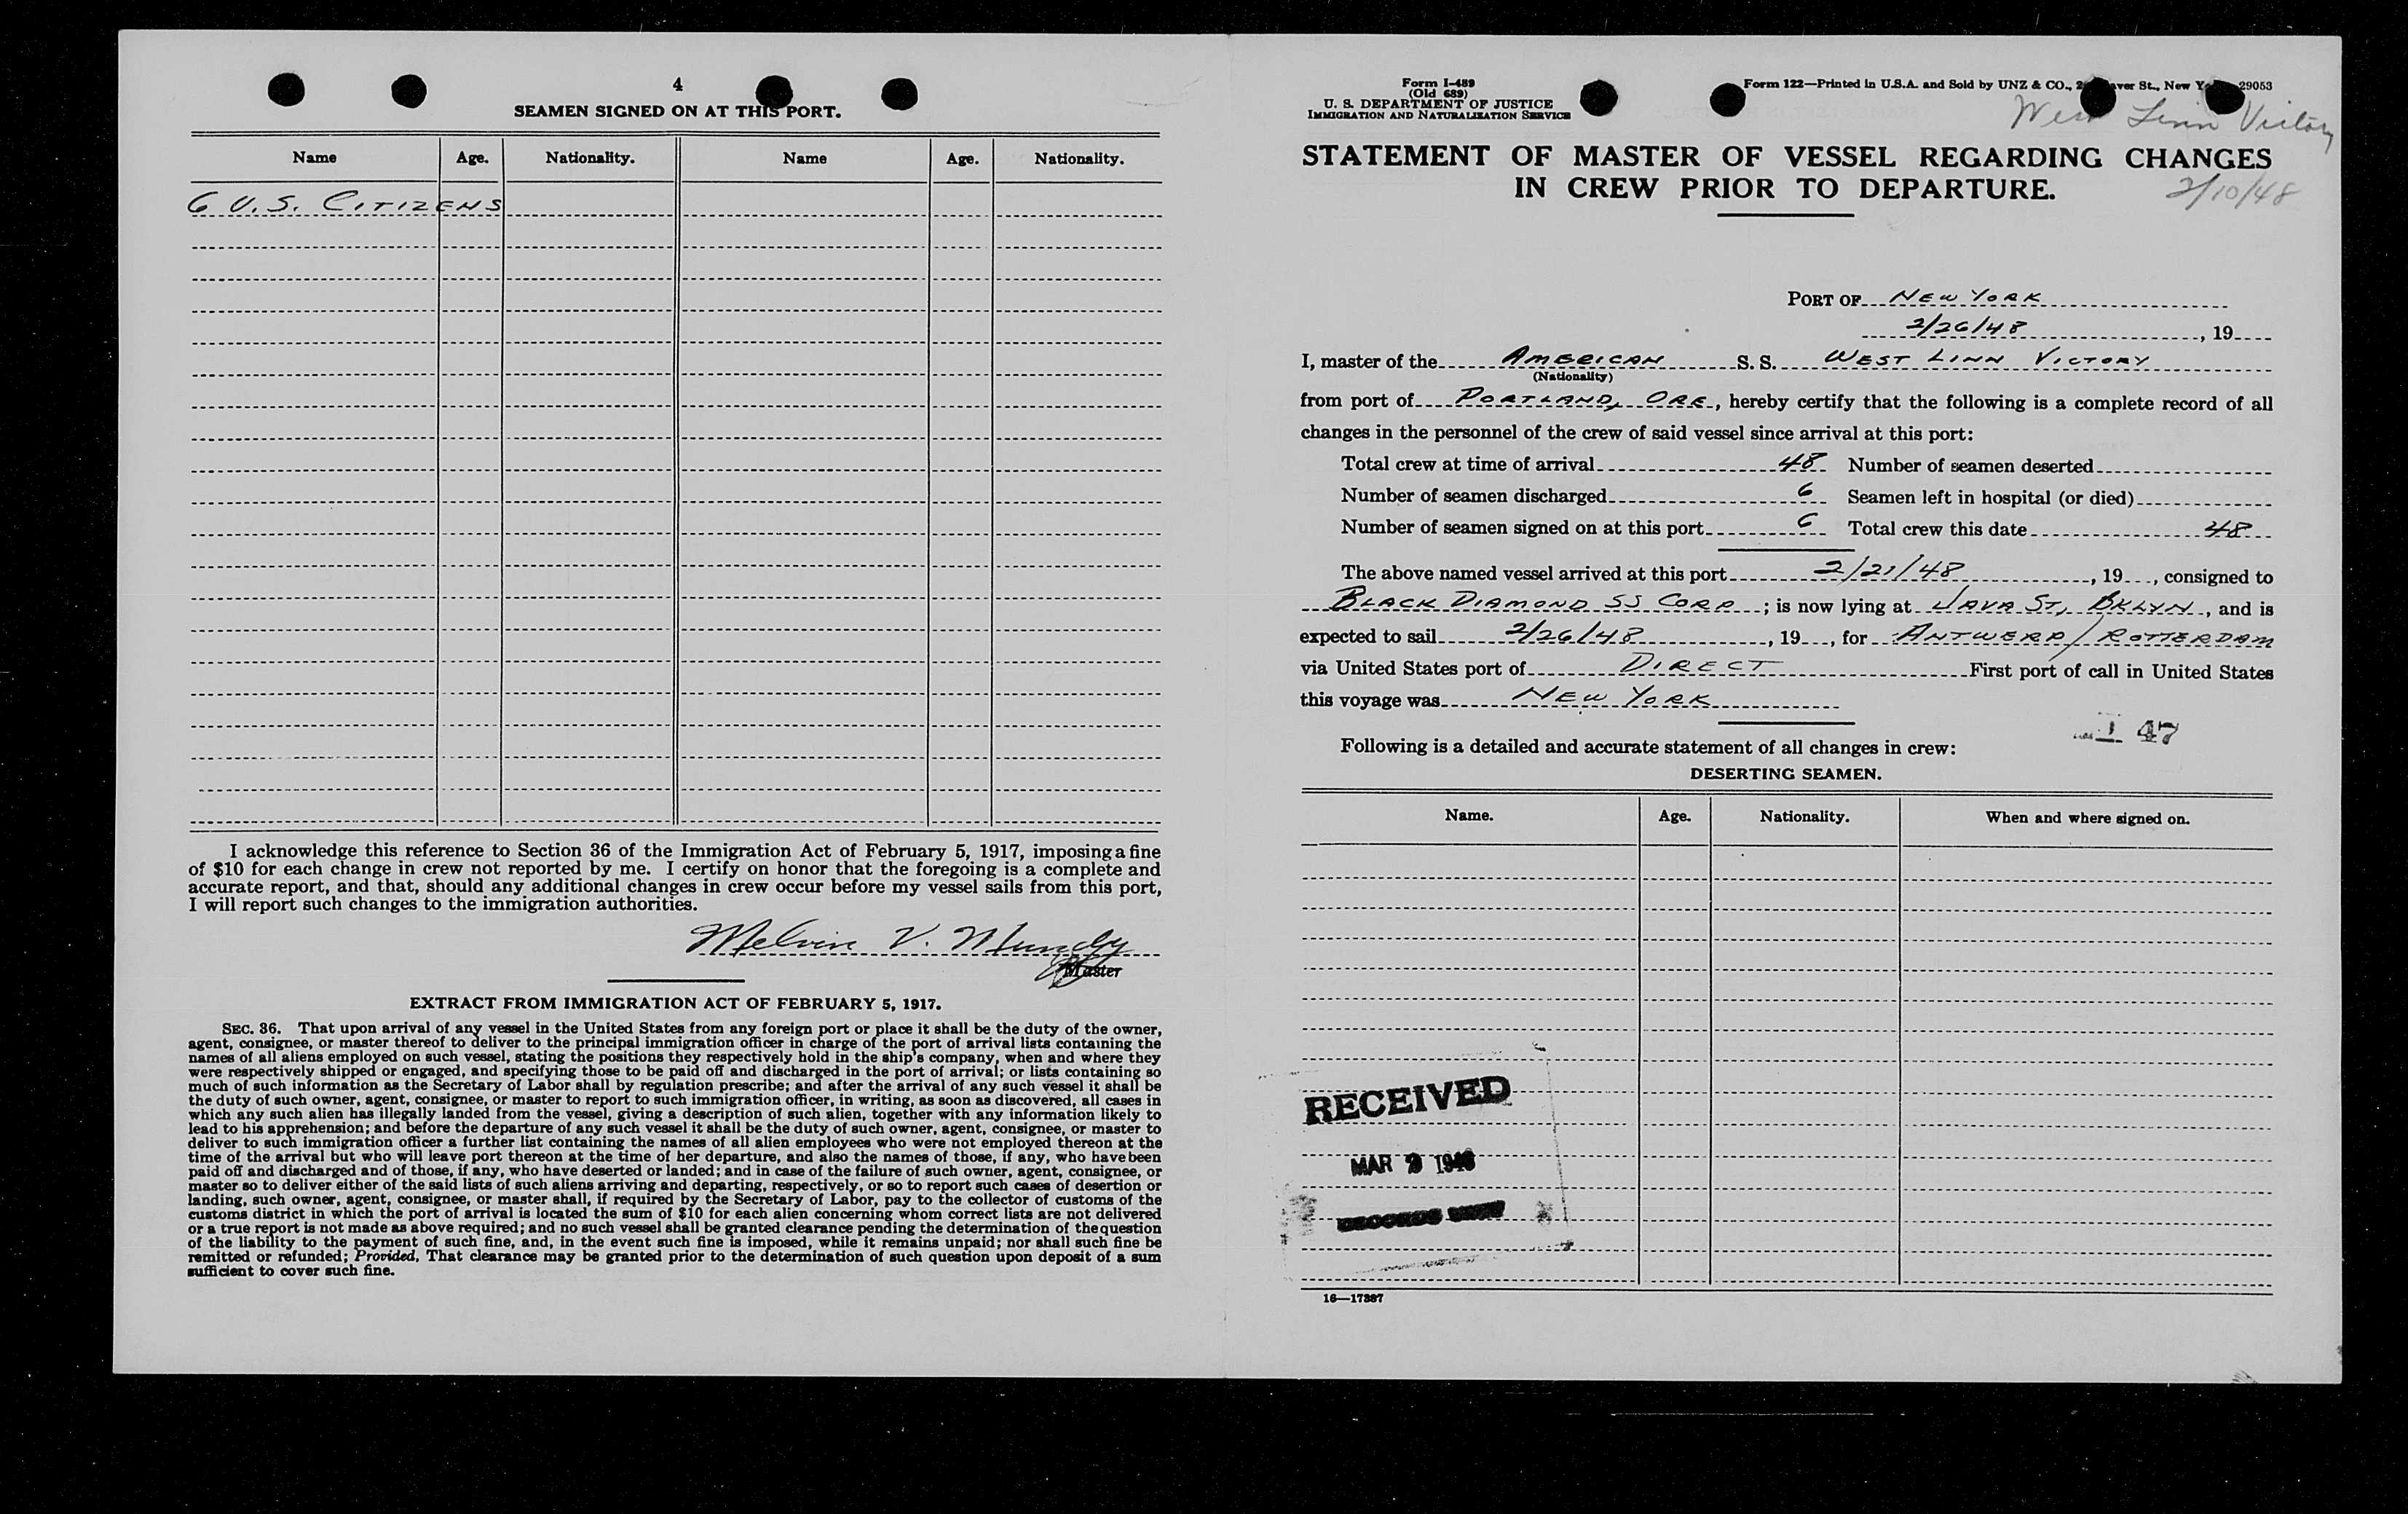 4
SEAMEN SIGNED ON AT THIS PORT.
Name Age. Nationality. Name Age. Nationality.
6 U.S. CITIZENS
I acknowledge this reference to Section 36 of the Immigration Act of February 5, 1917, imposing a fine
of $10 for each change in crew not reported by me. I certify on honor that the foregoing is a complete and
accurate report, and that, should any additional changes in crew occur before my vessel sails from this port,
I will report such changes to the immigration authorities.
Melvin V. Mundy
Master
EXTRACT FROM IMMIGRATION ACT OF FEBRUARY 5, 1917.
SEC. 36. That upon arrival of any vessel in the United States from any foreign port or place it shall be the duty of the owner,
agent, consignee, or master thereof to deliver to the principal immigration officer in charge of the port of arrival lists containing the
names of all aliens employed on such vessel, stating the positions they respectively hold in the ship's company, when and where they
were respectively shipped or engaged, and specifying those to be paid off and discharged in the port of arrival; or lists containing so
much of such information as the Secretary of Labor shall by regulation prescribe; and after the arrival of any such vessel it shall be
the duty of such owner, agent, consignee, or master to report to such immigration officer, in writing, as soon as discovered, all cases in
which any such alien has illegally landed from the vessel, giving a description of such alien, together with any information likely to
lead to his apprehension; and before the departure of any such vessel it shall be the duty of such owner, agent, consignee, or master to
deliver to such immigration officer a further list containing the names of all alien employees who were not employed thereon at the
time of the arrival but who will leave port thereon at the time of her departure, and also the names of those, if any, who have been
paid off and discharged and of those, if any, who have deserted or landed; and in case of the failure of such owner, agent, consignee, or
master so to deliver either of the said lists of such aliens arriving and departing, respectively, or so to report such cases of desertion or
landing, such owner, agent, consignee, or master shall, if required by the Secretary of Labor, pay to the collector of customs of the
customs district in which the port of arrival is located the sum of $10 for each alien concerning whom correct lists are not delivered
or a true report is not made as above required; and no such vessel shall be granted clearance pending the determination of the question
of the liability to the payment of such fine, and, in the event such fine is imposed, while it remains unpaid; nor shall such fine be
remitted or refunded; Provided, That clearance may be granted prior to the determination of such question upon deposit of a sum
sufficient to cover such fine.
Form I-489
(Old 689)
U. S. DEPARTMENT OF JUSTICE
IMMIGRATION AND NATURALIZATION SERVICE
Form 122—Printed in U.S.A. and Sold by UNZ & CO., St., New 29053
West Linn Victory
STATEMENT OF MASTER OF VESSEL REGARDING CHANGES
IN CREW PRIOR TO DEPARTURE.
2/10/48
PORT OF NEW YORK
2/26/48, 19
I, master of the AMERICAN S. S. WEST LINN VICTORY
(Nationality)
from port of PORTLAND, ORE, hereby certify that the following is a complete record of all
changes in the personnel of the crew of said vessel since arrival at this port:
Total crew at time of arrival 48 Number of seamen deserted
Number of seamen discharged 6 Seamen left in hospital (or died)
Number of seamen signed on at this port 6 Total crew this date 48
The above named vessel arrived at this port 2/21/48, 19, consigned to
BLACK DIAMOND SS CORP; is now lying at JAVA ST, BKLYN, and is
expected to sail 2/26/48, 19, for ANTWERP/ROTTERDAM
via United States port of DIRECT First port of call in United States
this voyage was NEW YORK
47
Following is a detailed and accurate statement of all changes in crew:
DESERTING SEAMEN.
Name. Age. Nationality. When and where signed on.
RECEIVED
MAR 1948
RECORDS UNIT
16—17387